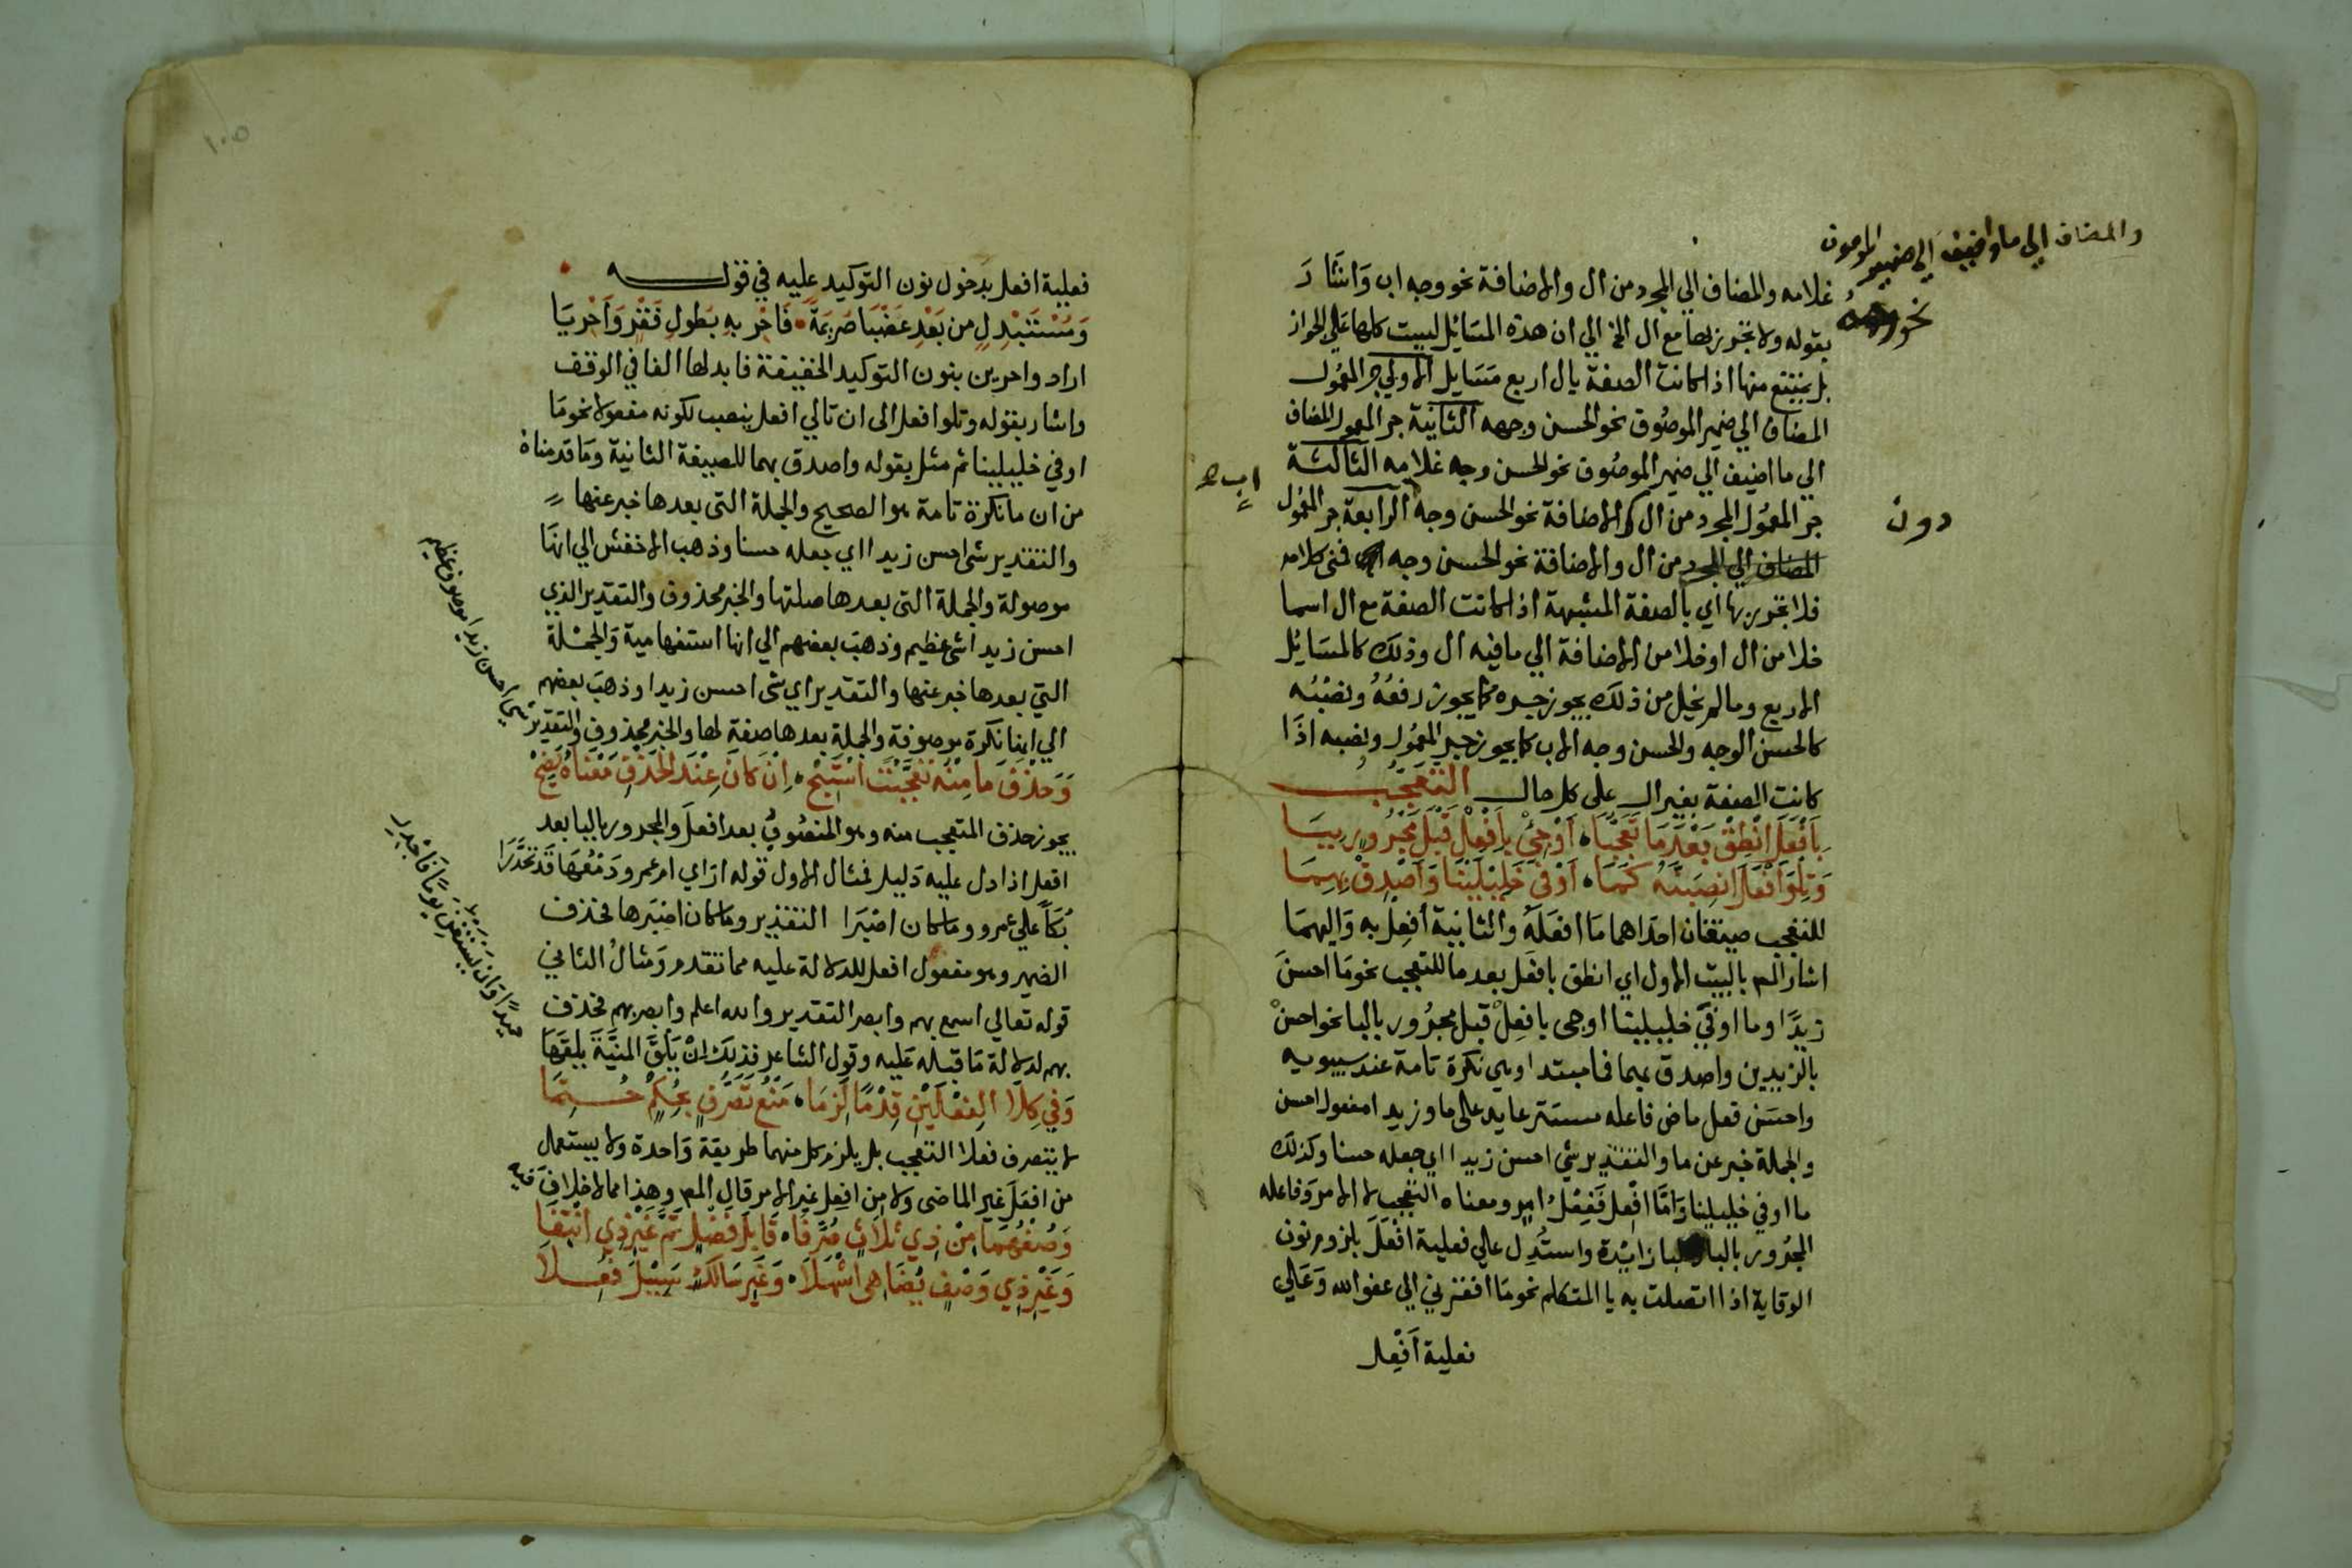 والمضاف الي ما اضيف الي ضمير الموصوف
نحو وجه
غلامه والمضاف الي المجرد من ال والاضافة نحو وجه اب وَاشَارَ
بقوله ولا تجرر بها مع ال الخ الي ان هذه المسَائل ليست كلها عَلي الجواز
بل يمتنع منها اذا كانت الصفة بال اربع مسَايل الاولي جر المعمُول
المضاف الي ضمير الموصُوف نحو الحسن وجهه الثانية جر المعمول المضاف
الي ما اضيف الي ضمير الموصُوف نحو الحسن وجه غلامه الثالثة
جر المعمُول المجرد من ال والاضافة نحو الحسن وجه الرابعة جر المعمُول
دون
المضاف الي المجرد من ال والاضافة نحو الحسن وجه اب فمعنى كلامه
اب
فلا تجرر بها أي بالصفة المشبهة اذا كانت الصفة مع ال اسما
خلا من ال او خلا من الاضافة الي ما فيه ال وذلك كالمسَايُل
الاربع وما لم يخل من ذلكَ يجوز جره كما يجوز رفعُهُ ونصْبُه
كالحسن الوجه والحسن وجه الاب كما يجوز جر المعمُول ونصبه اذَا
كانت الصفة بغير ال على كل حال التعَجُّبُ
بِأَفْعَلَ انْطِقْ بَعْدَ مَا تَعَجُّبَا أَوْجِيْ بِأَفْعِلْ قَبْلَ مَجْرُورٍ بِبَا
وَتِلْوَ أَفْعَلَ انْصِبَنَّهُ كَمَا أَوْفَى خَلِيلَيْنَا وَأَصْدِقْ بِهِمَا
للتعجب صيغتان احدَاهما مَا افعَلَهُ والثانية أَفعِلْ به وَاليهمَا
اشار المص بالبيت الاول اي انطق بافعَل بعد ما للتعجب نحو مَا احسنَ
زيدًا وما اوفَى خليلينا او جى بافعِلْ قبل مجرُور بالبا نحو احسنْ
بالزيدين واصدق بهما فما مبتدا وهي نكرة تامة عند سيبويه
واحسَن فعل ماض فاعله مستتر عايد على ما وزيدا مفعول احسن
والجملة خبر عن ما والتقدير شي احسن زيدا اي جعله حسنا وكذلك
ما اوفي خليلينا وَامَّا افْعِل فَفِعْلُ امر ومعناه التعجب لا الامر وَفاعله
المجرُور بالبا والبا زائدة واستُدِل عالي فعلية افْعَلَ بلزوم نون
الوقاية اذا اتصلت به يا المتكلم نحو مَا افقرني الي عفو الله وَعَلي
فعلية اَفْعِل
١٠٥
فعلية افعل بدخول نون التوكيد عليه في قوله
وَمُسْتَبْدِلٍ من بَعْدِ غَضْبَا صُرَيْمَةً فَاَحْرِ بهِ بطُولِ فَقْرٍ وَاَحْرِيَا
اراد واحرين بنون التوكيد الخفيفة فابدلها الفا في الوقف
واشار بقوله وتلو افعل الى ان تالي افعل ينصب لكونه مفعولا نحو مَا
اوفي خليلينا ثم مثل بقوله واصدق بهما للصيغة الثانية ومَا قدمناه
من ان ما نكرة تامة هو الصحيح والجملة التى بعدها خبر عنها
والتقدير شى احسن زيدا اي جعله حسنا وذهب الاخفش الي انها
موصولة والجملة التى بعدها صلتها والخبر محذوف والتقدير الذي
احسن زيدا شي عظيم وذهبَ بعضهم الي انها استفهامية وَالجمْلة
التي بعدها خبر عنها والتقدير اي شى احسن زيدا وذهبَ بعضهم
الي انها نكرة موصوفة والجملة بعدها صفة لها والخبر محذوف والتقدير
شي احسن زيدا موصوف عظيم
وَحَذْفَ مَا مِنْهُ تَعَجَّبْتَ اسْتَبِحْ اِنْ كَانَ عِنْدَ الحَذْفِ مَعْنَاهُ يَضِحْ
يجوز حذف المتعجب منه وهو المنصُوبُ بعد افعَلَ والمجرور بالبا بعد
افعل اذا دل عليه دَليل فمثال الاول قوله ارَاي ام عمرو دَمْعُهَا قَد تَحَدَّرَا
بُكَاً عَلي عمرو وما كان اصْبَرَا التقدير وما كان اصْبَرها فحذف
الضمير وهو مفعول افعل للدلالة عليه مما تقدم ومَثالُ الثاني
قوله تعالي اسمع بهم وابصر التقدير والله اعلم وابصر بهم فحذف
بهم لدلالة مَا قبله عَليه وقول الشاعر فذلك اِنْ يَلْقَ المنيَّةَ يلقَهَا
حميدًا وَانْ يَسْتَغْنِ يومًا فَأَجْدِرِ
وَفِي كِلَا الفِعْلَيْنِ قِدْمًا لَزِمَا مَنْعُ تَصَرُّفٍ بِحُكْمٍ حُتِمَا
لا يتصرف فعلا التعجب بل يلزم كل منهما طريقة وَاحدة ولا يستعمل
من افعَلَ غير الماضى ولا مِن افعِل غير الامر قال المص وهذا مما لا خلافَ فيه
وَصُغْهُمَا مِنْ ذِي ثَلَاثٍ صُرِّفَا قَابِلِ فَضْلٍ تَمَّ غَيْرِ ذِي انْتِفَا
وَغَيْرِ ذِي وَصْفٍ يُضَاهى أَشْهَلَا وَغَيْرِ سَالكٍ سَبِيْلَ فُعِلَا